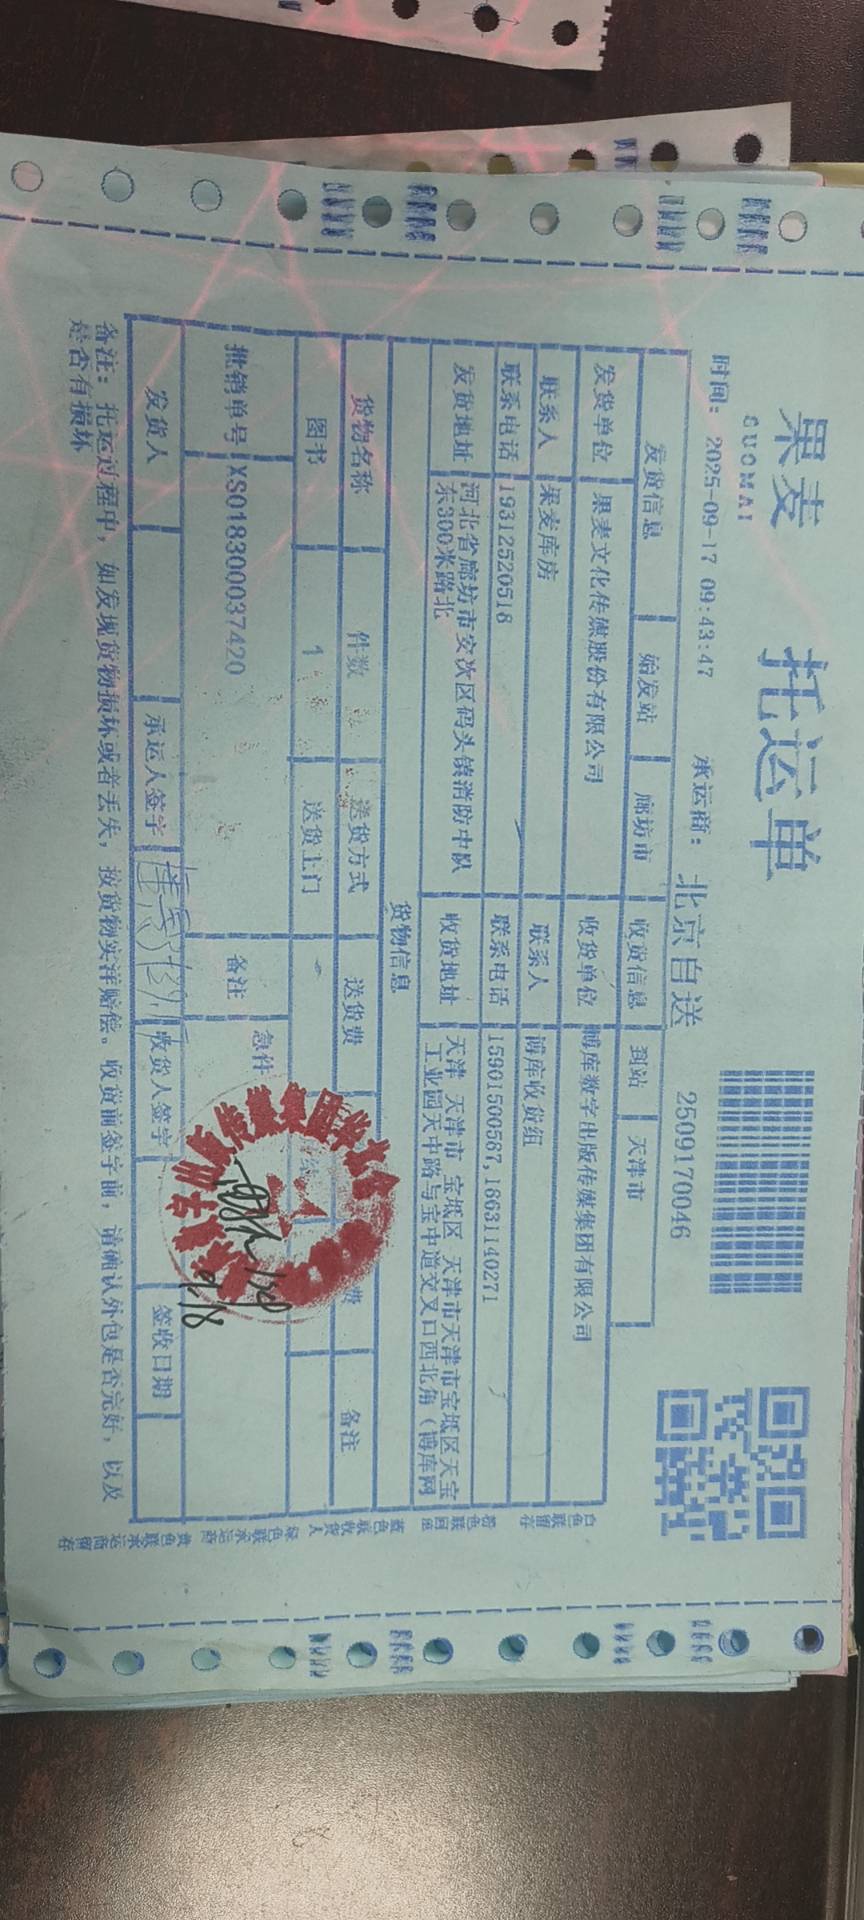 果麦
GUOMAI
托运单
2509170046
时间： 2025-09-17 09:43:47 承运商： 北京自送
发货信息 始发站 廊坊市 收货信息 到站 天津市
发货单位 果麦文化传媒股份有限公司 收货单位 博库数字出版传媒集团有限公司
联系人 果麦库房 联系人 博库收货组
联系电话 19312520518 联系电话 15901500587,18631140271
发货地址 河北省廊坊市安次区码头镇消防中队
东300米路北
收货地址 天津 天津市 宝坻区 天津市天津市宝坻区天宝
工业园天中路与宝中道交叉口西北角（博库网
货物信息
货物名称 件数 送货方式 送货费 费 备注
图书 1 送货上门
批销单号 XS018300037420 备注 急件
发货人 承运人签字 收货人签字 签收日期
备注：托运过程中，如发现货物损坏或者丢失，按货物实洋赔偿。收货前签字前，请确认外包是否完好，以及
是否有损坏
白色联留存
粉色联回库
蓝色联收货人
绿色联承运商
黄色联承运商留存
出版传媒集团华北